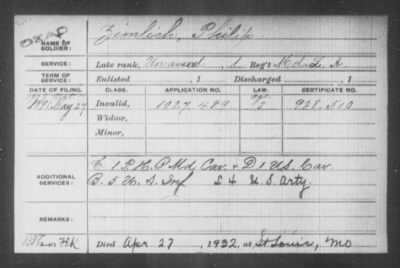 NAME OF SOLDIER: Zimlich, Philip
SERVICE: Late rank, Unassd, 1 Reg't Md. L. A
TERM OF SERVICE: Enlisted , 1 Discharged , 1
DATE OF FILING. CLASS. APPLICATION NO. LAW. CERTIFICATE NO.
1891 May 27 Invalid, 1027.489 928.510
Widow,
Minor,
ADDITIONAL SERVICES: C. 1 P.H.B Md. Cav. & D 1 U.S. Cav.
B. 5 U. S. Inf L 4 U S Arty.
REMARKS:
Died Apr 27, 1932, at St Louis, Mo